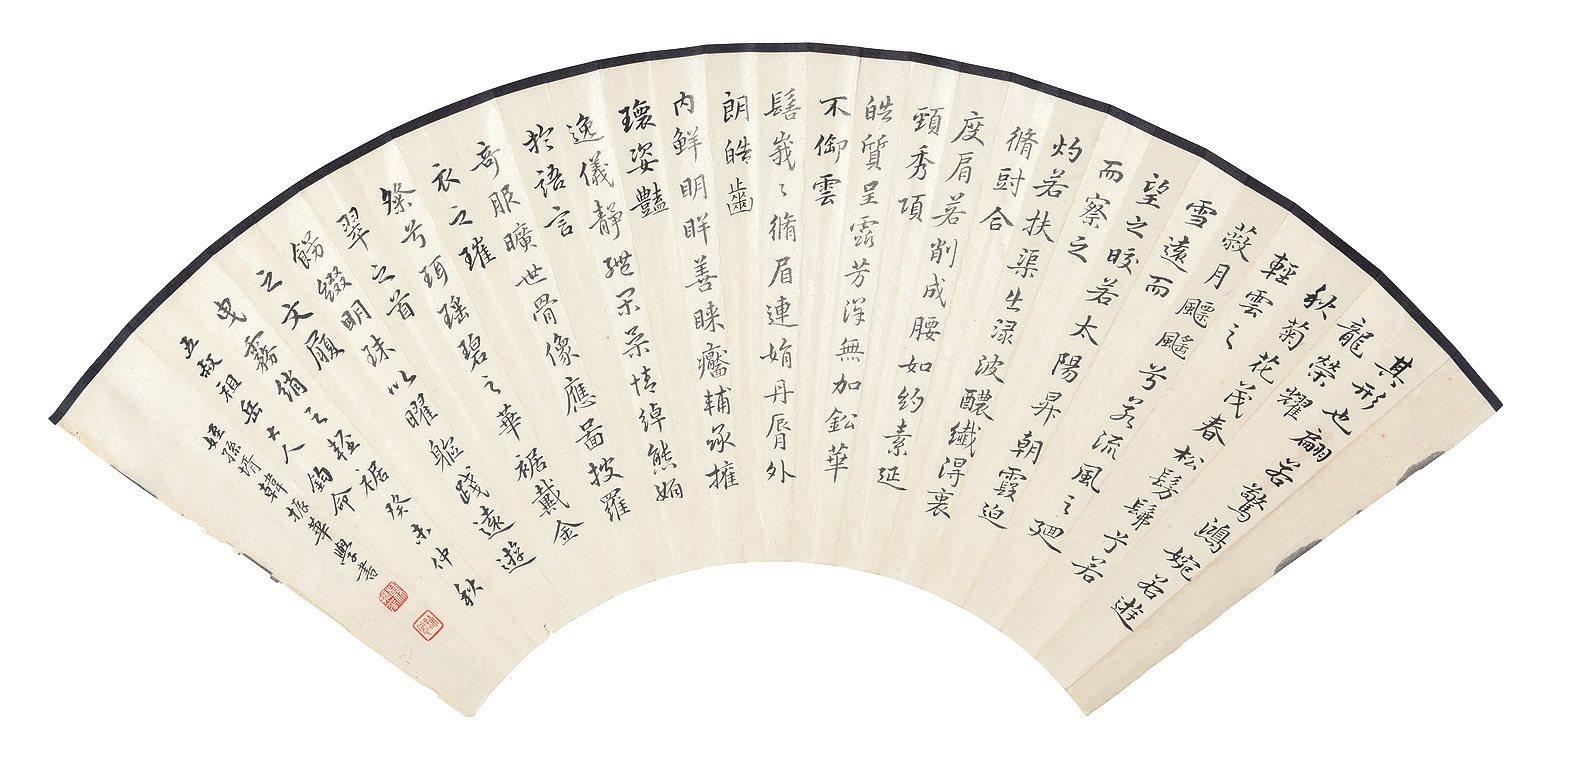 其形也翩若驚鴻婉若遊
龍榮耀
秋菊花茂春松髣髴兮若
輕雲之
蔽月飄飖兮若流風之迴
雪遠而
望之皎若太陽昇朝霞迫
而察之
灼若扶渠出淥波醲纖得衷
脩短合
度肩若削成腰如約素延
頸秀項
皓質呈露芳澤無加鉛華
不御雲
髻峩々脩眉連娟丹唇外
朗皓齒
內鮮明眸善睞靨輔承權
瓌姿豔
逸儀靜體閑柔情綽態媚
於語言
奇服曠世骨像應圖披羅
衣之璀
粲兮珥瑤碧之華裾戴金
翠之首
飾綴明珠以曜軀踐遠遊
之文履
曳霧綃之輕裾癸未仲秋
五叔祖岳大人鈞命
姪孫壻韓振華學書